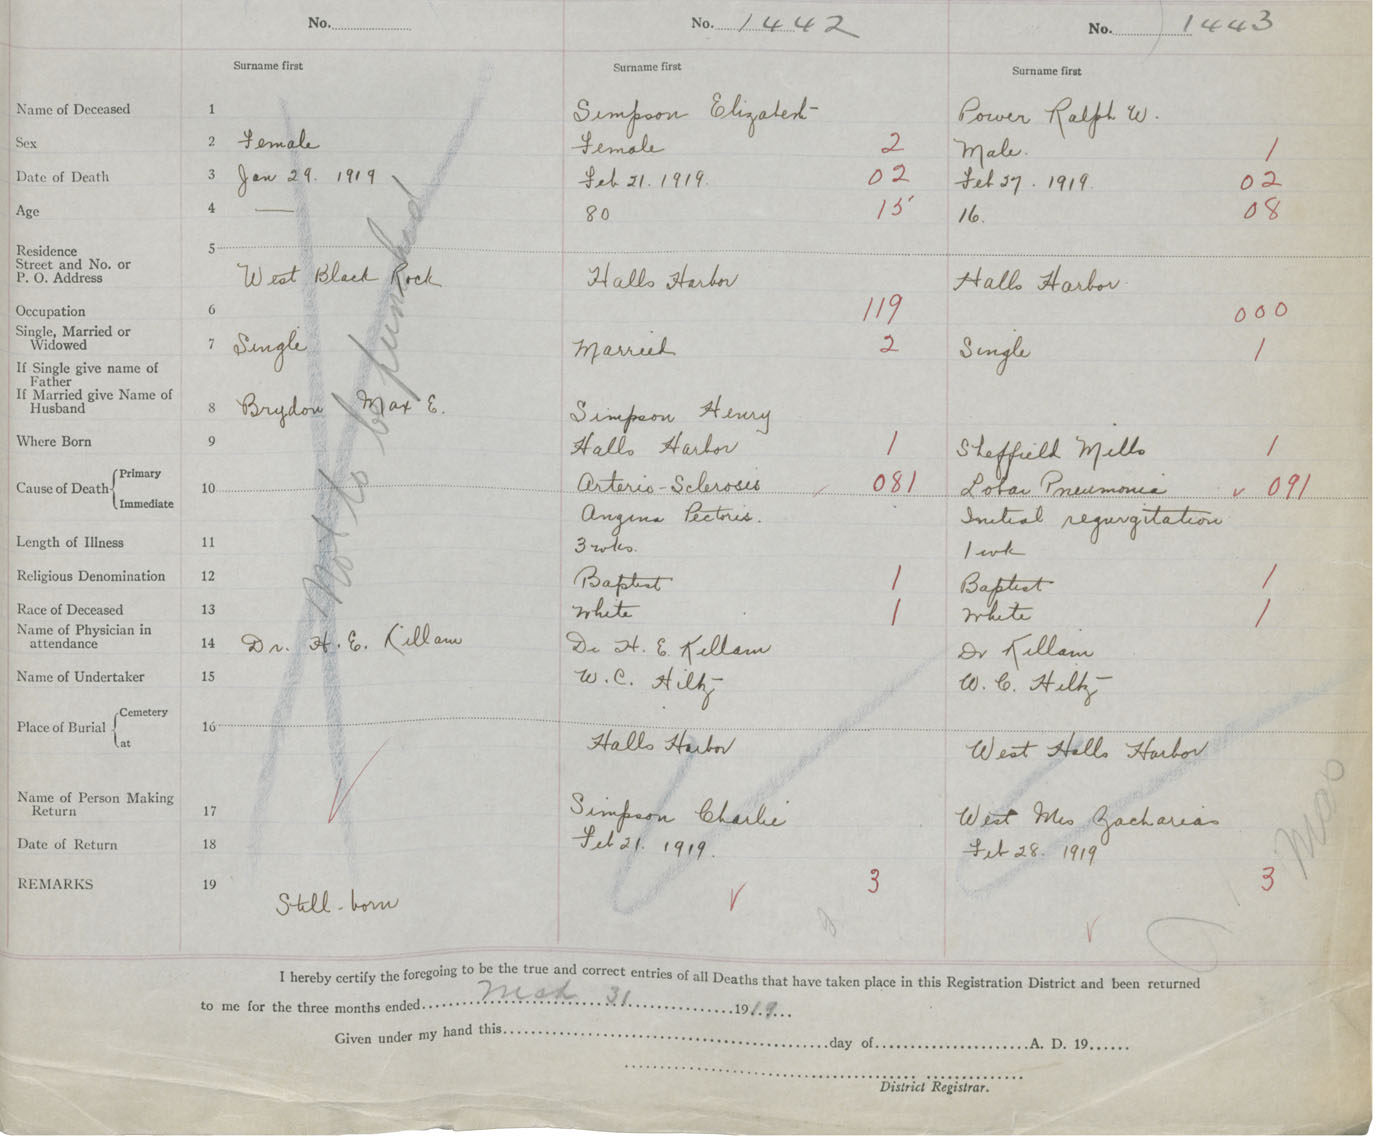 No. No. 1442 No. 1443
Surname first Surname first Surname first
Name of Deceased 1 Simpson Elizabeth Power Ralph W.
Sex 2 Female Female 2 Male. 1
Date of Death 3 Jan 29. 1919 Feb 21. 1919. 02 Feb 27. 1919. 02
Age 4 — 80 15 16. 08
Residence 5
Street and No. or
P. O. Address West Black Rock Halls Harbor Halls Harbor
Occupation 6 119 000
Single, Married or
Widowed 7 Single Married 2 Single 1
If Single give name of
Father
If Married give Name of
Husband 8 Brydon Max E. Simpson Henry
Where Born 9 Halls Harbor 1 Sheffield Mills 1
Cause of Death Primary 10 Arterio-Sclerosis 081 Lobar Pneumonia 091
Immediate Angina Pectoris. Initial regurgitation
Length of Illness 11 3 wks. 1 wk
Religious Denomination 12 Baptist 1 Baptist 1
Race of Deceased 13 White 1 White 1
Name of Physician in
attendance 14 Dr. H. E. Killam Dr H. E. Killam Dr Killam
Name of Undertaker 15 W. C. Hiltz W. C. Hiltz
Place of Burial Cemetery 16
at Halls Harbor West Halls Harbor
Name of Person Making
Return 17 Simpson Charlie West Mrs Zacharias
Date of Return 18 Feb 21. 1919. Feb 28. 1919
REMARKS 19 Still-born 3 3
Not to be punched
I hereby certify the foregoing to be the true and correct entries of all Deaths that have taken place in this Registration District and been returned
to me for the three months ended Mch 31 1919
Given under my hand this day of A. D. 19
District Registrar.